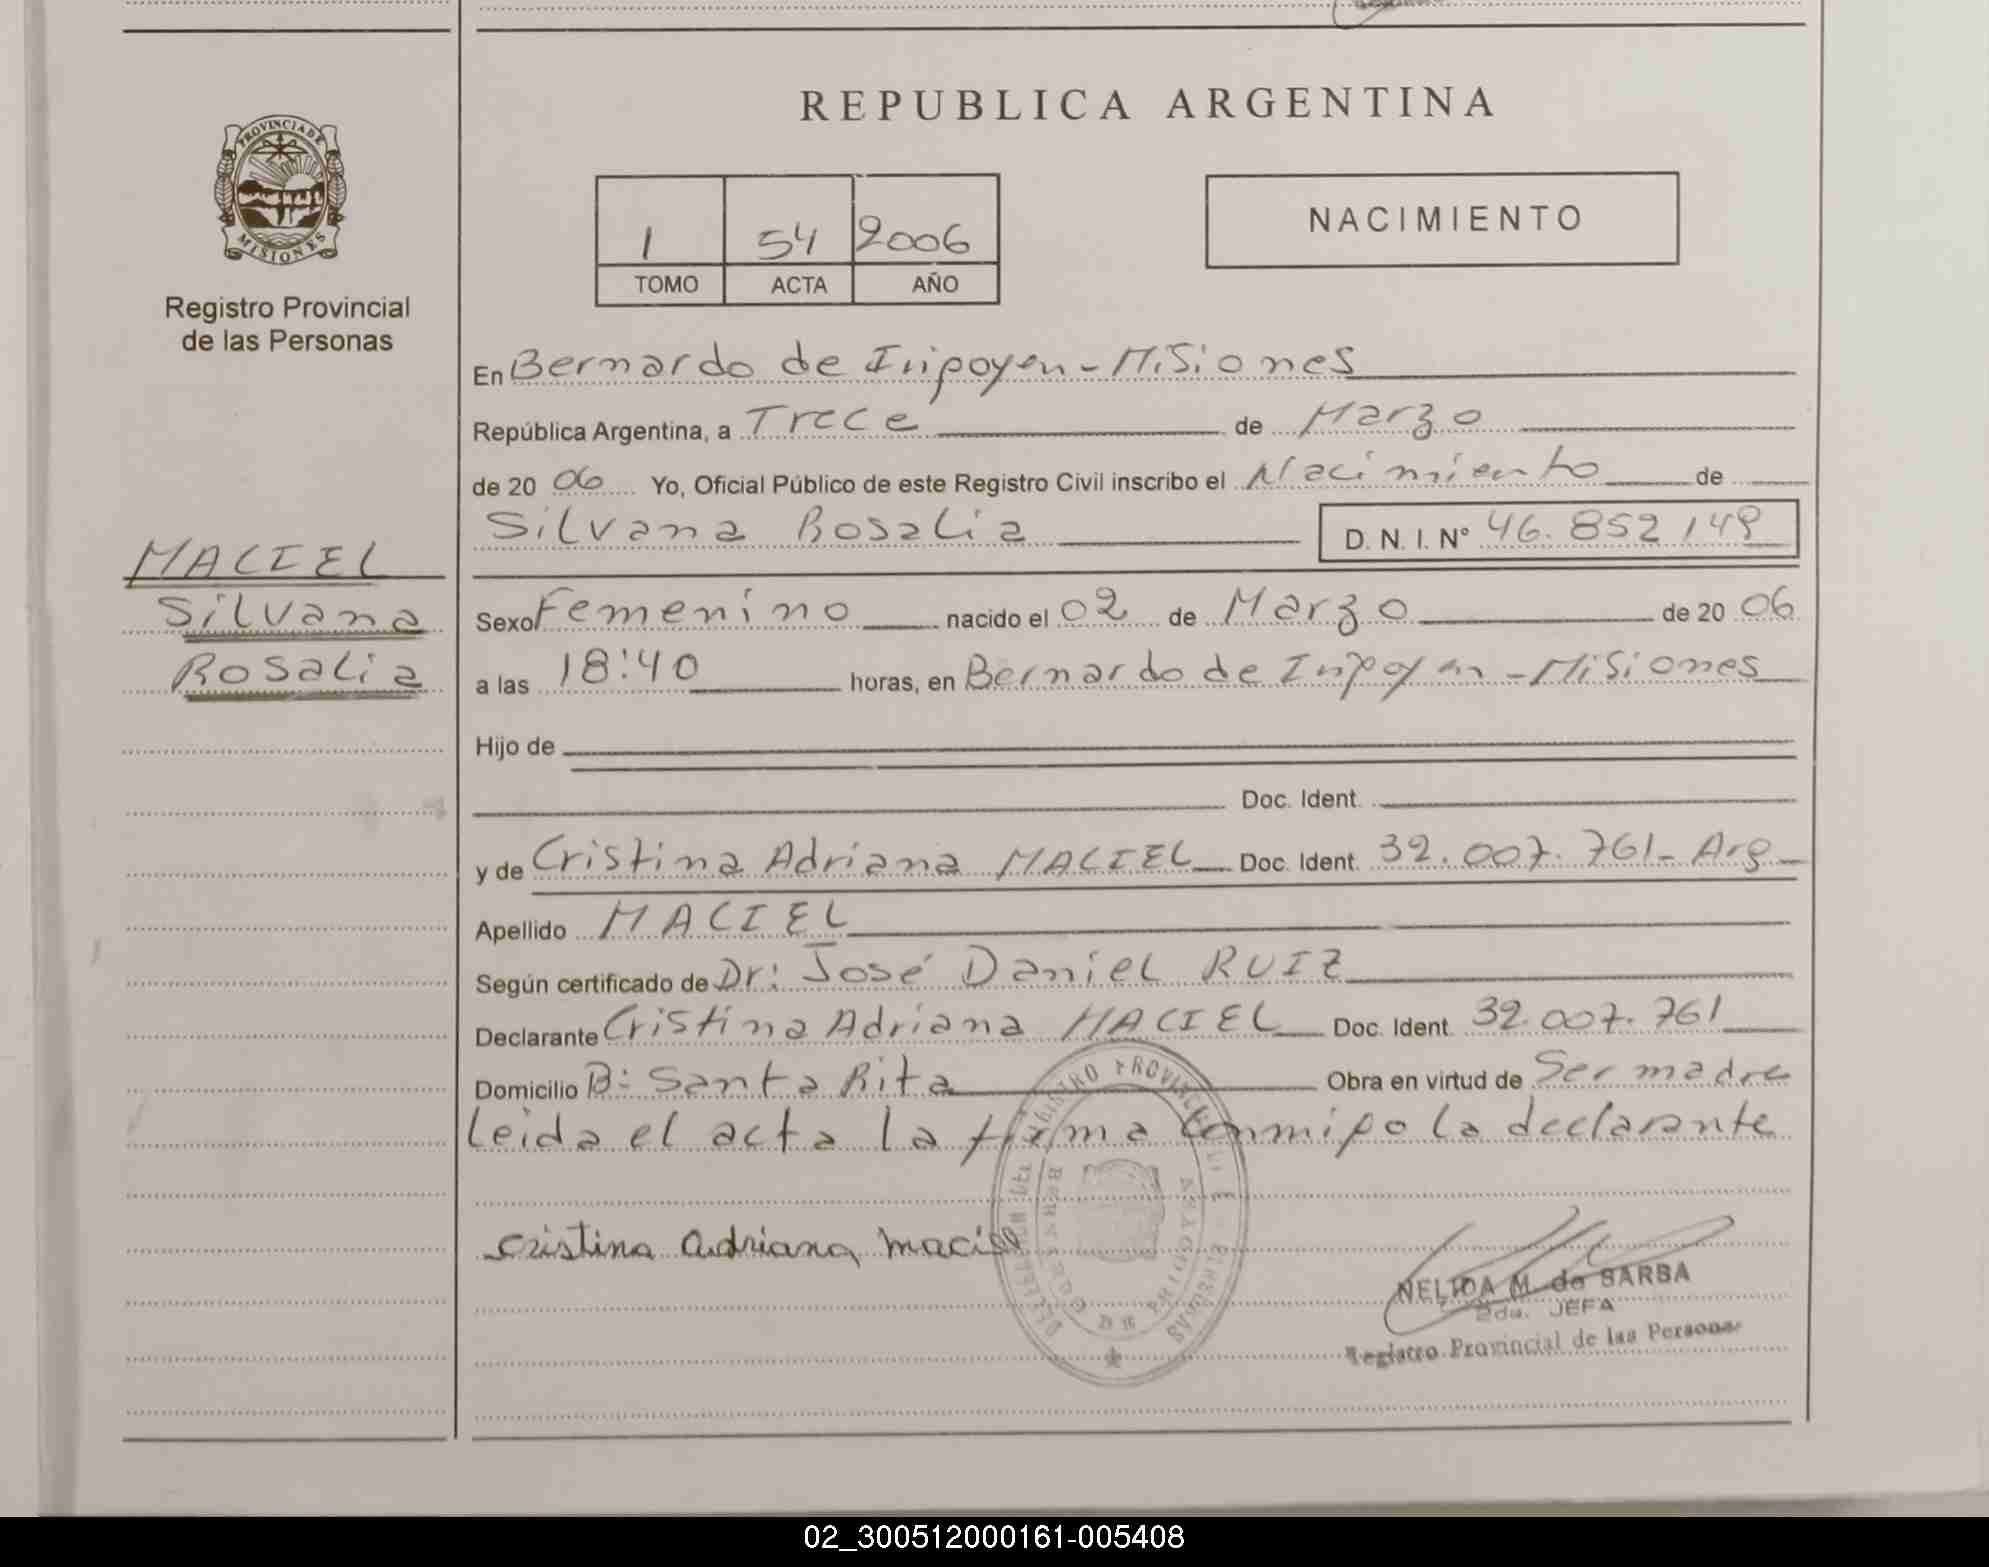 REPUBLICA ARGENTINA
PROVINCIA DE MISIONES
Registro Provincial
de las Personas
1 54 2006
TOMO ACTA AÑO
NACIMIENTO
En Bernardo de Irigoyen - Misiones
República Argentina, a Trece de Marzo
de 20 06 Yo, Oficial Público de este Registro Civil inscribo el Nacimiento de
Silvana Rosalia D. N. I. Nº 46.852 149
MACIEL
Silvana
Rosalia
Sexo Femenino nacido el 02 de Marzo de 20 06
a las 18:40 horas, en Bernardo de Irigoyen - Misiones
Hijo de
Doc. Ident.
y de Cristina Adriana MACIEL Doc. Ident. 32.007.761- Arg
Apellido MACIEL
Según certificado de Dr: José Daniel RUIZ
Declarante Cristina Adriana MACIEL Doc. Ident. 32.007.761
Domicilio B: Santa Rita Obra en virtud de Ser madre
Leida el acta la firma conmigo la declarante
Cristina Adriana Maciel
NELIDA M. de BARBA
2da. JEFA
Registro Provincial de las Personas
02_300512000161-005408